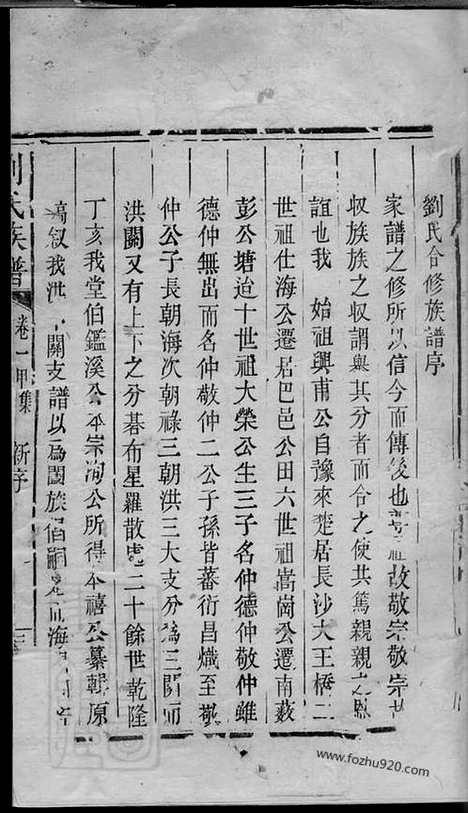 劉氏合修族譜序
家譜之修所以信今而傳後也尊祖故敬宗敬宗故
収族族之収謂與其分者而合之使共篤親親之恩
誼也我 始祖興甫公自豫來楚居長沙大王橋二
世祖仕海公遷居巴邑公田六世祖嵩崗公遷南藪
彭公塘迨十世祖大榮公生三子名仲德仲敬仲雖
德仲無出而名仲敬仲二公子孫皆蕃衍昌熾至敬
仲公子長朝海次朝祿三朝洪三大支分為三關而
洪關又有上下之分碁布星羅散處二十餘世乾隆
丁亥我堂伯鑑溪公本宗洵公所得本禧公纂輯原
稿叙我洪 關支譜以為闔族倡嗣是 海
劉氏族譜 卷一甲集 新序
www.fozhu920.com